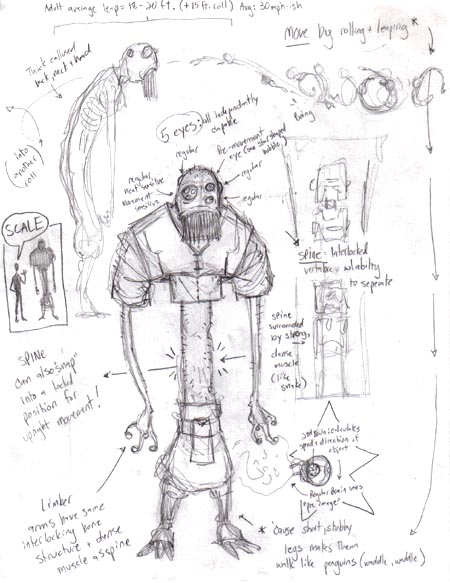 Adult average leap = 18-20 ft. (+15 ft. roll) Avg: 30mph-ish
move by rolling + leaping *
Thick calloused
neck, back + head
(into
another
roll)
Boing
5 eyes: all independently
capable
regular
Pre-movement
eye (
regular
heat sensitive
movement
sensitive
regular
regular
SCALE
spine = Interlocked
vertebrae w/ ability
to seperate
spine
surrounded
by strong,
dense
muscle
(like
snake)
SPINE
Can also "snap"
into a locked
position for
upright movement!
2nd Brain: calculates
speed + direction of
object
Regular Brain sees
"pre image"
Limber
arms have same
interlocking bone
structure + dense
muscle as spine
* 'cause short, stubby
legs makes them
walk like penguins (waddle, waddle)